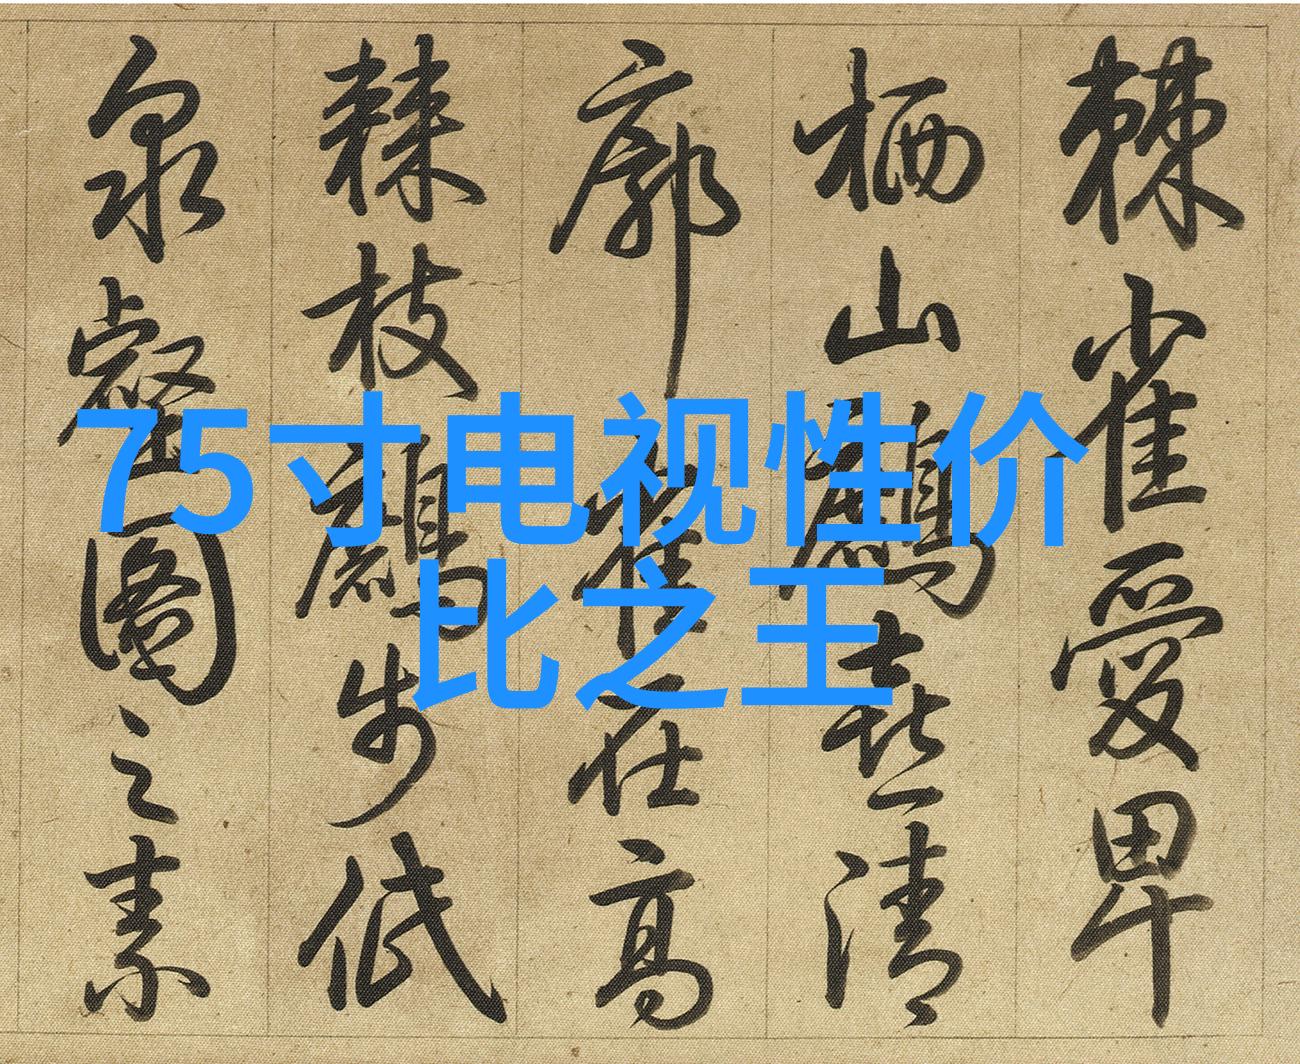 75寸电视性价
比之王
棘雀愛卑
栖山鷓喜清
廓雀在高
棘枝鷓步低
泉壑圖之素